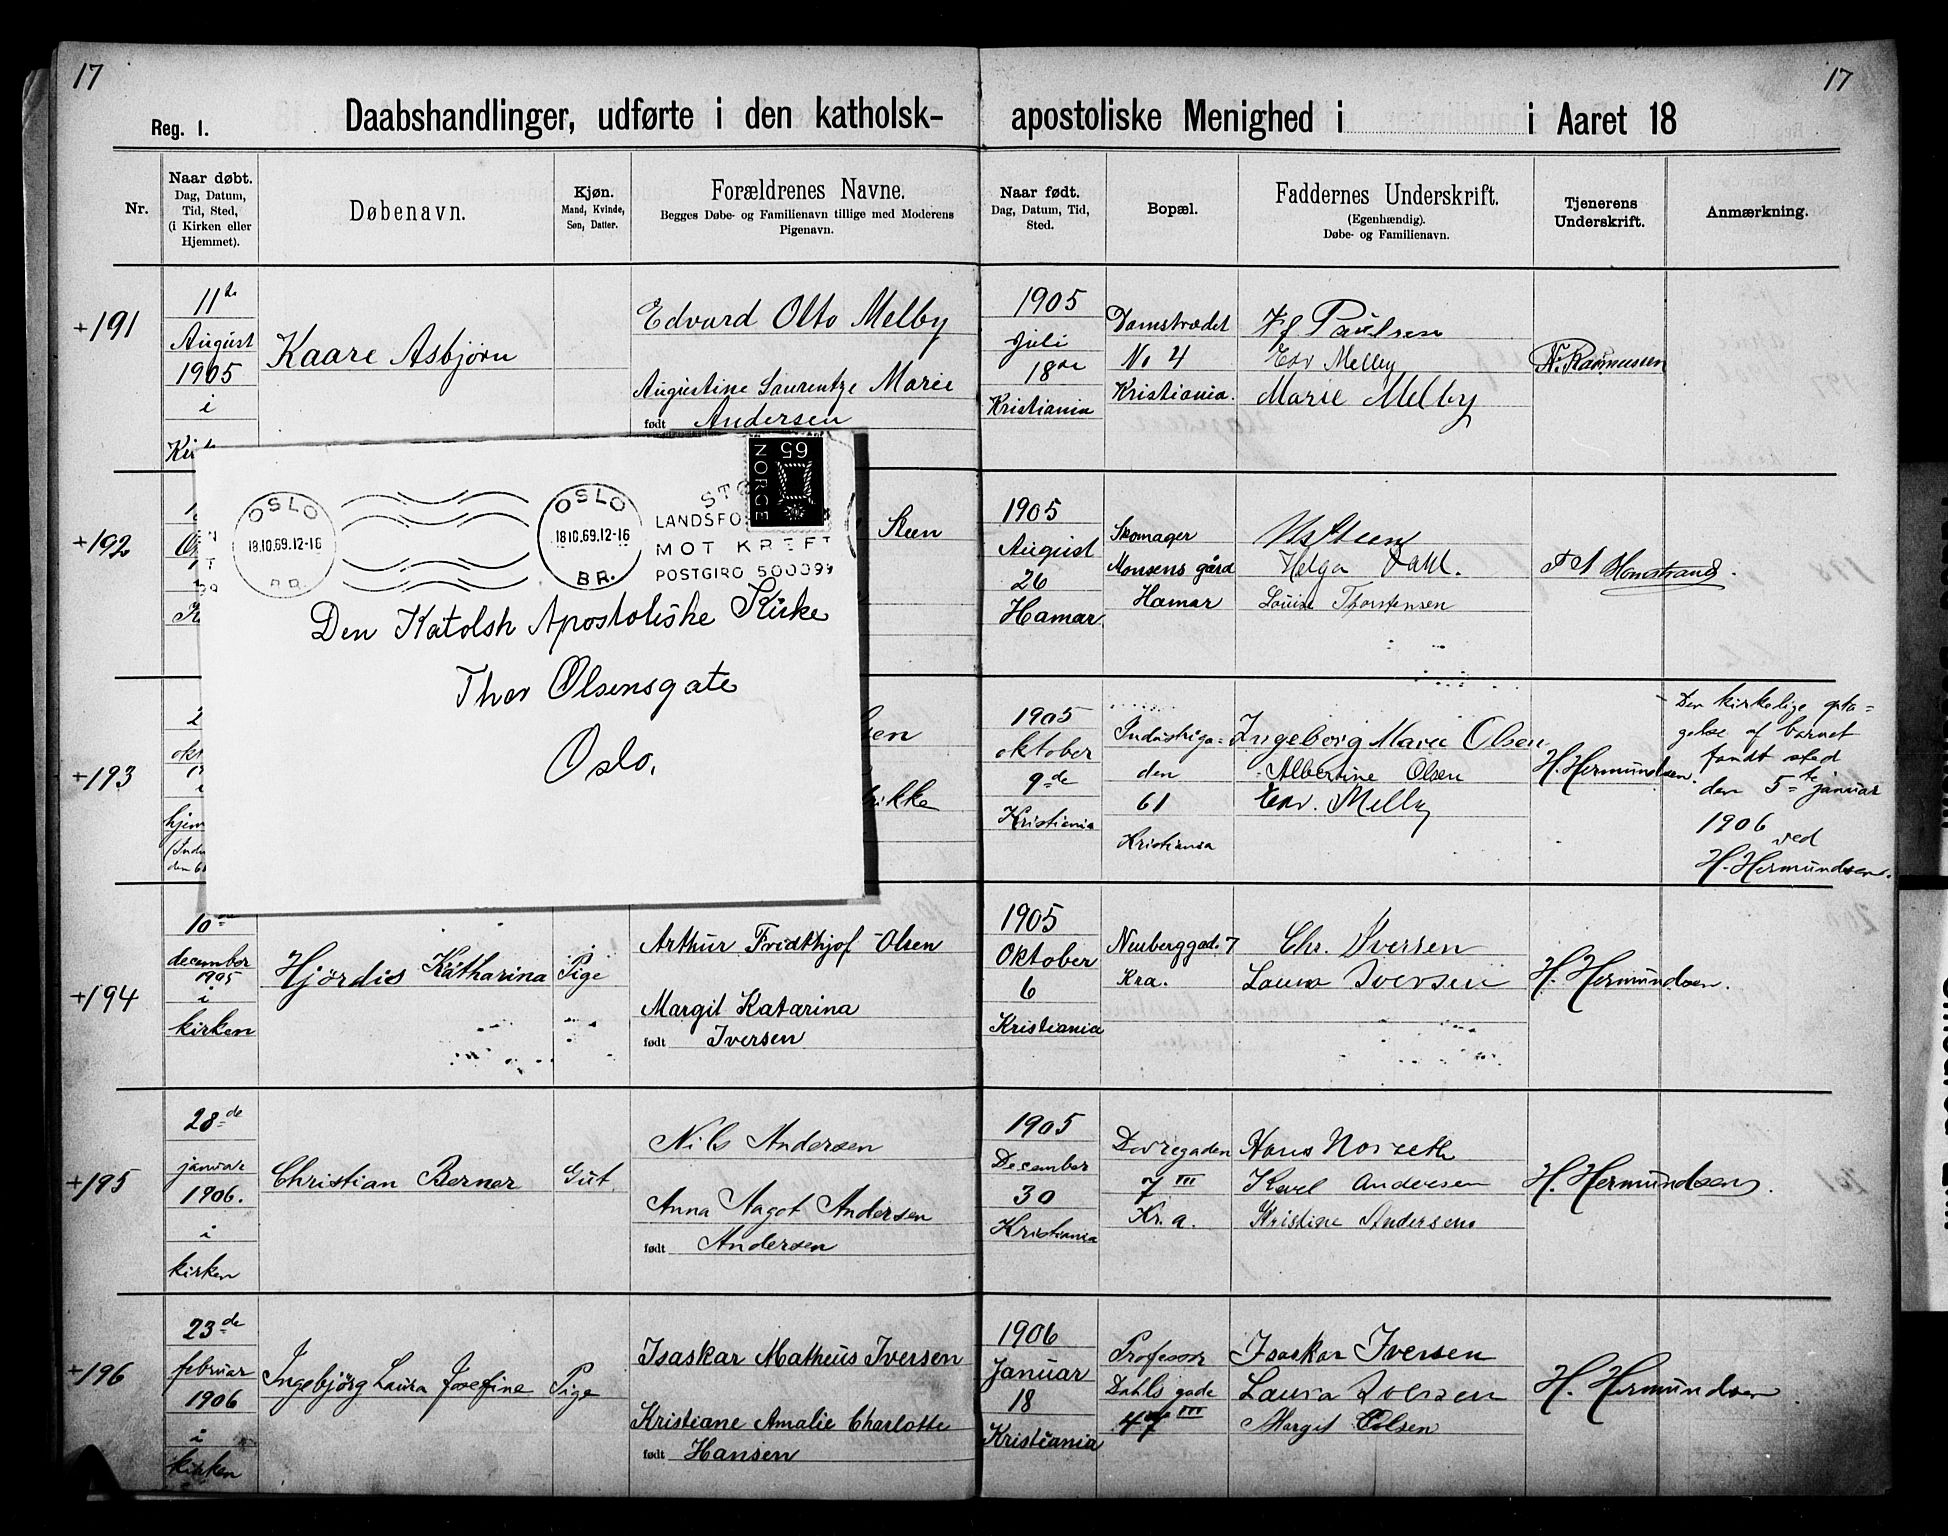 17
17
Reg. 1.
Daabshandlinger, udførte i den katholsk-
apostoliske Menighed i
i Aaret 18
Nr.
Naar døbt.
Dag, Datum,
Tid, Sted,
(i Kirken eller
Hjemmet).
Døbenavn.
Kjøn.
Mand, Kvinde,
Søn, Datter.
Forældrenes Navne.
Begges Døbe- og Familienavn tillige med Moderens
Pigenavn.
Naar født.
Dag, Datum, Tid,
Sted.
Bopæl.
Faddernes Underskrift.
(Egenhændig).
Døbe- og Familienavn.
Tjenerens
Underskrift.
Anmærkning.
+191
11te
August
1905
i
Kaare Asbjørn
Edvard Otto Melby
Augustine Laurentze Marie
født Andersen
1905
Juli
18de
Kristiania
Damstrædet
No 4
Kristiania.
Paulsen
Edv Melby
Marie Melby
N. Rasmussen
+192
Steen
1905
August
26
Hamar
Skomager
Monsens gård
Hamar
Steen
Helga Dahl.
Louise Thorstensen
OSLO
18.10.69.12-16
BR.
OSLO
18.10.69.12-16
BR.
LANDSFO
MOT KREFT
POSTGIRO 500099
NORGE
65
Den Katolsk Apostoliske Kirke
Thor Olsensgate
Oslo.
+193
hjem
den 61
1905
oktober
9de
Kristiania
Industriga=
den
61
Kristiania
Ingeborg Marie Olsen
Albertine Olsen
Edv. Melby
H. Hermundsen.
Den kirkelige opta=
gelse af barnet
fandt sted
den 5te januar
1906
ved
H. Hermundsen.
+194
10de
december
1905
i
kirken
Hjørdis Katharina
Pige
Arthur Fridthjof Olsen
Margit Katarina
født Iversen
1905
Oktober
6
Kristiania
Neuberggad. 7
Kra.
Chr. Iversen
Laura Iversen
H. Hermundsen.
+195
28de
januar
1906.
i
kirken
Christian Berner
Gut
Nils Andersen
Anna Nagot Andersen
født Andersen
1905
December
30
Kristiania
Dovregaden
7 III
Kr.a.
Hans Norseth
Karel Andersen
Kristine Andersen
H. Hermundsen.
+196
23de
februar
1906
i
kirken
Ingebjørg Laura Josefine
Pige
Isaskar Matheus Iversen
Kristiane Amalie Charlotte
født Hansen
1906
Januar
18
Kristiania
Professor
Dahls gade
47 III
Isaskar Iversen
Laura Iversen
Margit Olsen
H. Hermundsen